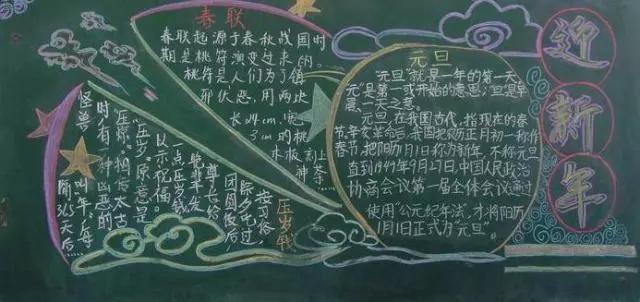 春联
春联起源于春秋战国时
期是桃符演变过来的。
桃符是人们为了镇
邪伏恶,用两块
长4cm,宽
3cm的桃
木板刻上
神荼
元旦
元旦"就是一年的第一天
元"是第一或开始的意思;旦是早
晨,一天之意。
元旦,在我国古代,指现在的春
节,辛亥革命后,我国把农历正月初一称作
春节,把阳历1月1日称为新年,不称元旦
直到1949年9月27日,中国人民政治
协商会议第一届全体会议通过
使用"公元纪年法",才将阳历
1月1日正式为"元旦"。
迎
新
年
压岁钱
按习俗,
除夕吃过
团圆饭后
尊长给
晚辈平头
一点压岁钱
以示祝福。
"压岁"原意是
"压祟",相传太古
时有一种凶恶的
怪兽
叫"年",每
隔365天后